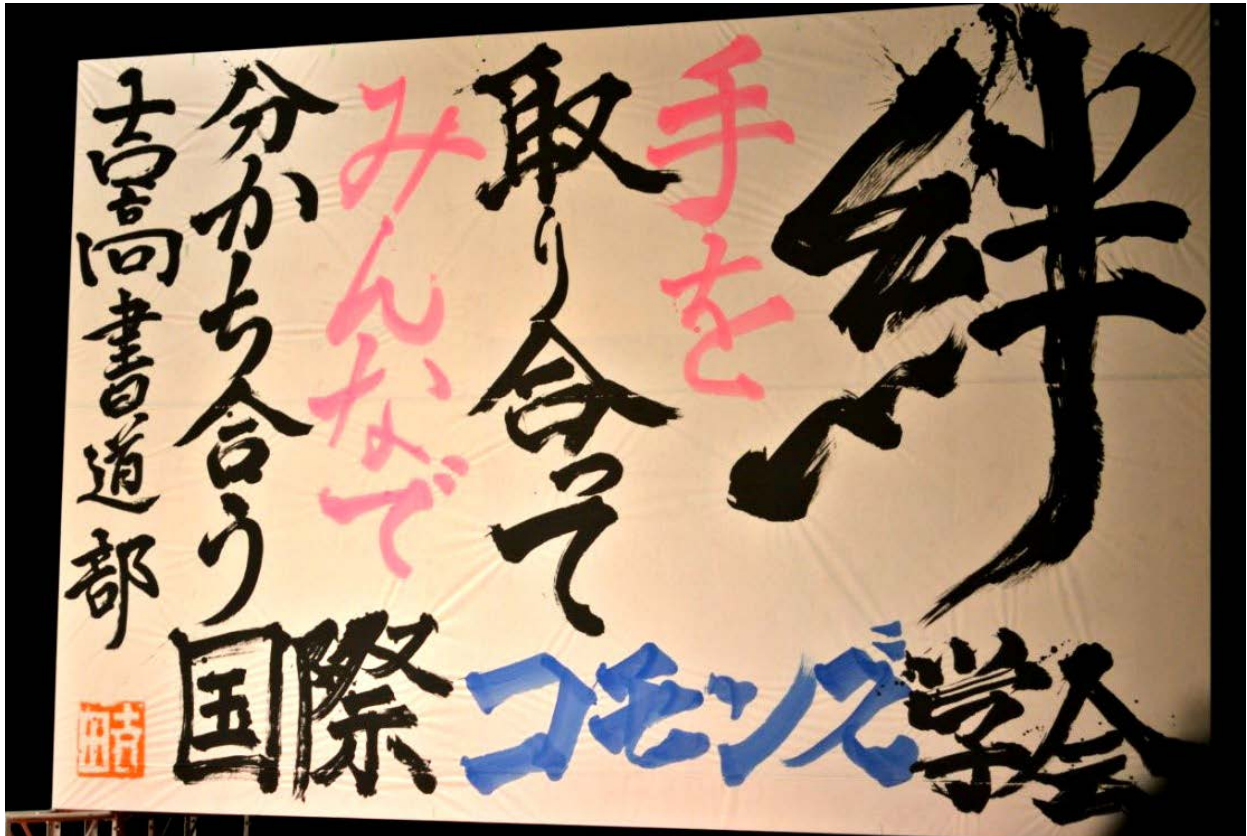 絆
手を
取り合って
みんなで
分かち合う
国際コモンズ学会
吉高書道部
吉田